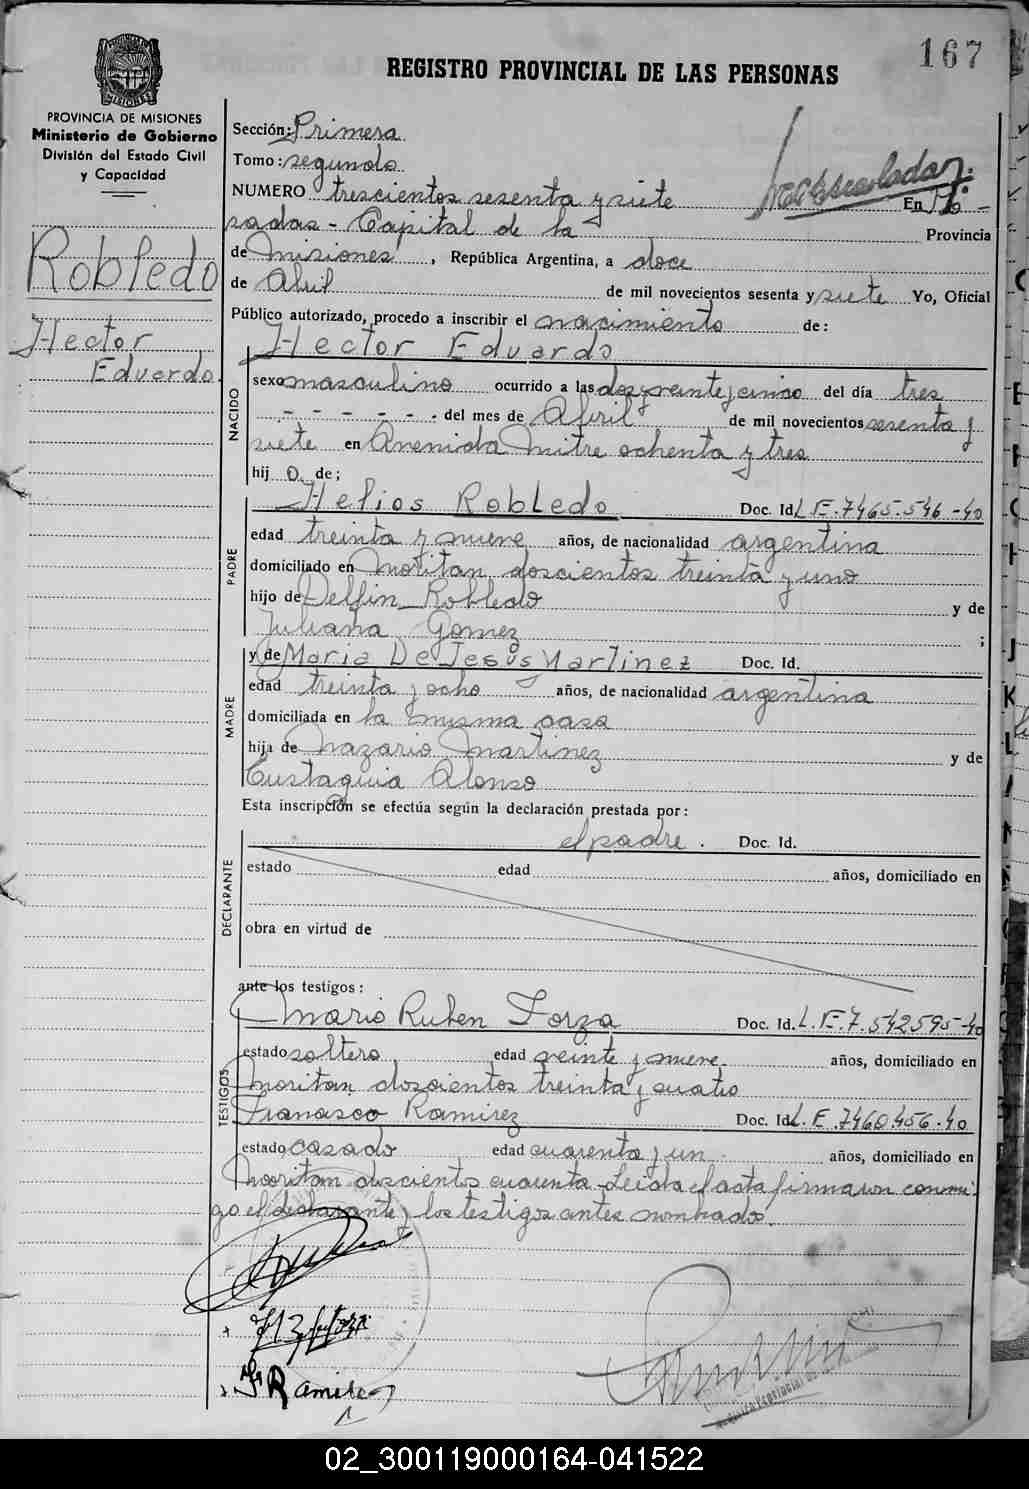 167
REGISTRO PROVINCIAL DE LAS PERSONAS
PROVINCIA DE MISIONES
Ministerio de Gobierno
División del Estado Civil
y Capacidad
Robledo
Hector
Eduardo
Sección: Primera
Tomo: segundo
NUMERO trescientos sesenta y siete En Po-
sadas - Capital de la Provincia
de Misiones, República Argentina, a doce
de Abril de mil novecientos sesenta y siete Yo, Oficial
Público autorizado, procedo a inscribir el nacimiento de:
Hector Eduardo
NACIDO
sexo masculino ocurrido a las dos y veinte y cinco del día tres
- - - - - . del mes de Abril de mil novecientos sesenta y
siete en Avenida Mitre ochenta y tres
hij o de;
Helios Robledo Doc. Id. L.E. 7465.546-40
PADRE
edad treinta y nueve años, de nacionalidad argentina
domiciliado en Moritan doscientos treinta y uno
hijo de Delfin Robledo y de
Juliana Gomez ;
y de Maria De Jesus Martinez Doc. Id.
MADRE
edad treinta y ocho años, de nacionalidad argentina
domiciliada en la misma casa
hija de Nazario Martinez y de
Eustaquia Alonso
Esta inscripción se efectúa según la declaración prestada por:
el padre. Doc. Id.
DECLARANTE
estado edad años, domiciliado en
obra en virtud de
ante los testigos:
Mario Ruben Forza Doc. Id. L.E. 7.542595-40
TESTIGOS
estado soltero edad veinte y nueve años, domiciliado en
Moritan doscientos treinta y cuatro
Francisco Ramirez Doc. Id. L.E. 7460.456.40
estado casado edad cuarenta y un años, domiciliado en
Mooritan doscientos cuarenta - Leida el acta firmaron conmi-
go el declarante y los testigos antes nombrados.
Fr Ramirez
02_300119000164-041522